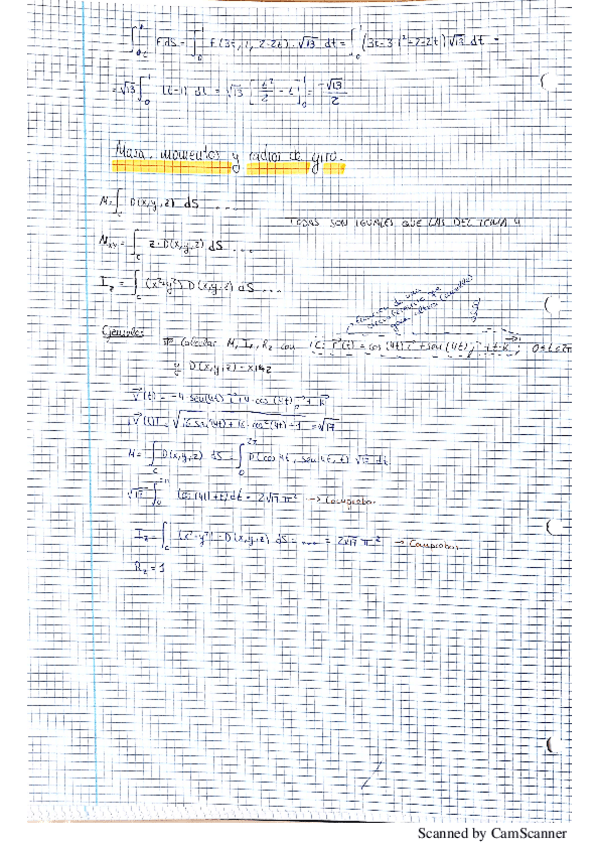 ∫ F dS = ∫₀¹ F(3t, 2, 2-2t) · √13 dt = ∫₀¹ √13 dt =
= √13 ∫₀¹ (t-1) dt = √13 [t²/2 - t]₀¹ = -√13/2
Masa, momentos y radios de giro.
M = ∫_c D(x,y,z) dS ....
TODAS SON IGUALES QUE LAS DEL
M_xy = ∫_c z · D(x,y,z) dS ...
I_z = ∫_c (x²+y²) D(x,y,z) dS ...
Ejemplo:
Calcular M, I_z, R_z con C: r⃗(t) = cos(4t) i⃗ + sen(4t) j⃗ + t·k⃗
y D(x,y,z) =
v⃗(t) = -4·sen(4t) i⃗ + 4·cos(4t) j⃗ + k⃗
|v⃗(t)| = √(16 sen²(4t) + 16·cos²(4t) + 1) = √17
M = ∫_c D(x,y,z) dS = ∫₀^2π D(cos 4t, sen 4t, t) √17 dt
√17 ∫₀^2π (cos(4t)+t) dt = 2√17 π² → Comprobar
I_z = ∫_c (x²+y²) · D(x,y,z) dS = .... = 2√17 π² → Comprobar
R_z = 1
Scanned by CamScanner